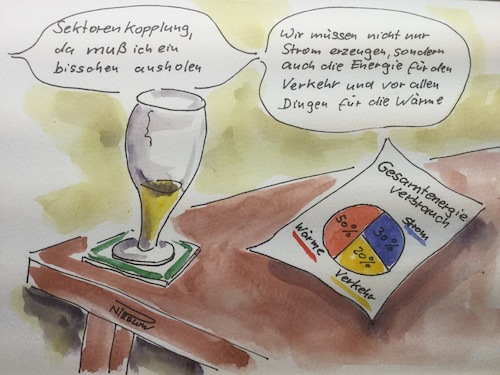 Sektorenkopplung,
da muß ich ein
bisschen ausholen
Wir müssen nicht nur
Strom erzeugen, sondern
auch die Energie für den
Verkehr und vor allen
Dingen für die Wärme
Gesamtenergie
verbrauch
50%
30%
20%
Strom
Wärme
Verkehr